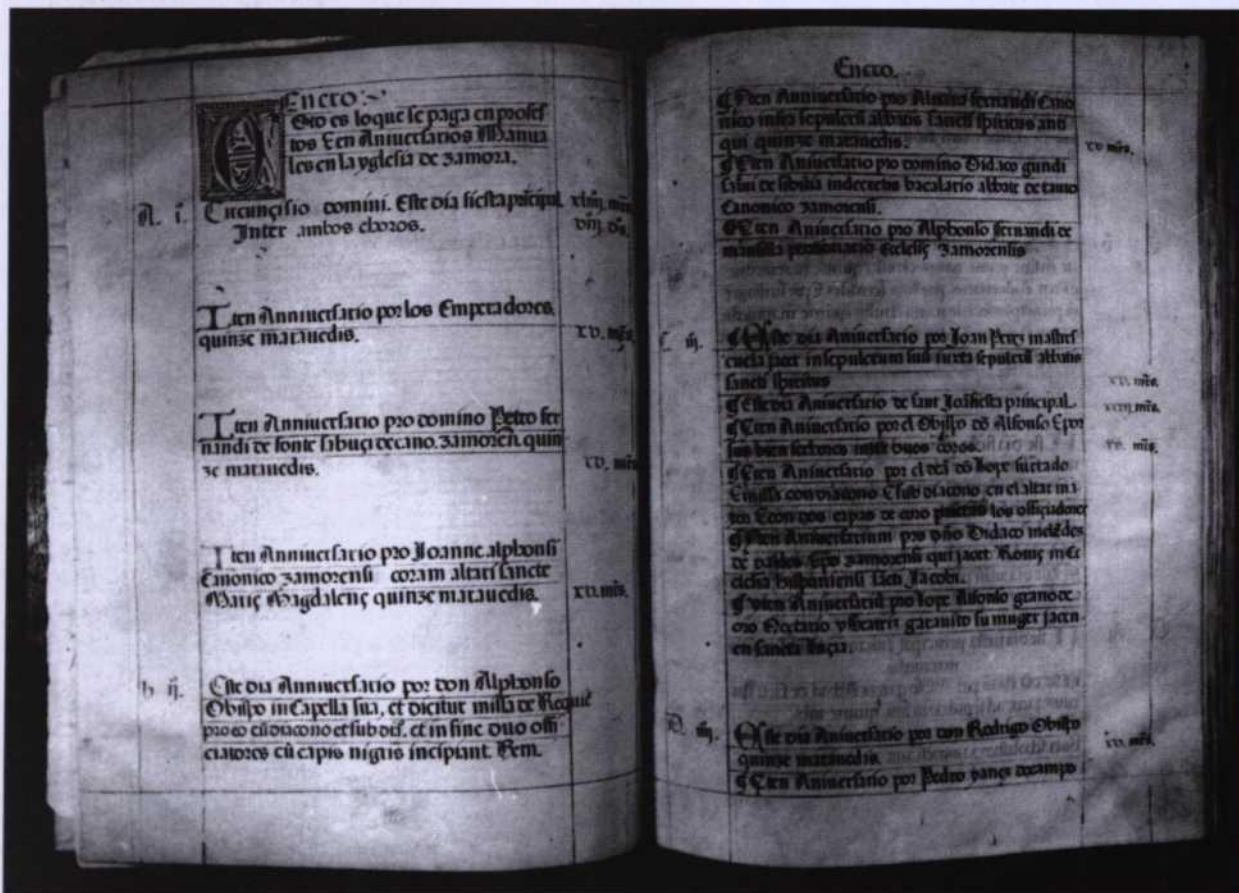 Enero
Esto es lo que se paga en profes
tos E en Aniuersarios Manua
les en la yglesia de zamora.
A. i. Circunçisio domini. Este dia fiesta prīcipal. xlviij. mr̄s.
Inter ambos choros. viij. ds.
Iten Anniuersario por los Emperadores,
quinze marauedis. xv. mr̄s.
Iten Anniuersario pro domino Petro fer
nandi de fonte sabuçi decano. zamoreñ. quin
ze marauedis. xv. mr̄s.
Iten Anniuersario pro Joanne. alphonsi
Canonico zamorensi coram altari sancte
Marię Magdalenę quinze marauedis. xv. mr̄s.
b ij. Este dia Anniuersario por don Alphonso
Obispo in Capella sua, et dicitur missa de Requiē
pro eo cū diacono et subdiē. et in fine duo offi
ciatores cū capis nigris incipiant. Rem.
Enero.
Iten Anniuersario pro Alfonso fernandi Cano
nico infra sepulcrū abbatis sancti spiritus anti
qui quinze marauedis. xv mr̄s.
Iten Aniuersario pro domino Didaco gundi
salui de sibilia in decretis bacalario abbate de tauro
Canonico zamorensi.
Iten Aniuersario pro Alphonso fernandi de
mansilla portionario Ecclesię zamorensis
C iij. Este dia Aniuersario por Joan Perez mastres
cuela jacet in sepulcrum suū iuxta sepulcrū abbatis
sancti spiritus xv. mr̄s.
Este dia Aniuersario de sant Joā fiesta principal. xviij. mr̄s.
Iten Aniuersario por el Obispo dō Alfonso E por
sus bien fechores inter duos coros. xv. mr̄s.
Iten Aniuersario por el dean dō lope furtado
E missa con diacono E subdiacono en el altar ma
E con dos capas de coro los offiçiadores
Iten Aniuersarium pro dño Didaco melēdes
de valdes Ēpo zamorensi qui jacet Romę in Ec
clesia hispaniensi sācti Jacobi.
Iten Aniuersariū pro lope Alfonso grano de
oro Notario y Beatris garauito su muger jacen
en sancta luçia.
D iiij. Este dia Aniuersario por don Rodrigo Obispo
quinze marauedis. xv. mr̄s.
Iten Aniuersario por Pedro yanes docampo